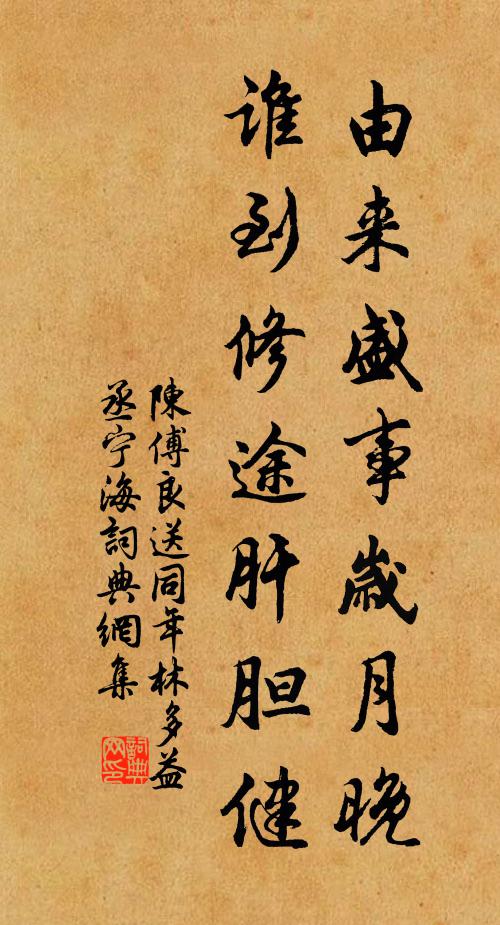 由来盛事歲月晚
谁到修途肝胆健
陳傅良送同年林多益
丞宁海詞典網集
詞典
网印